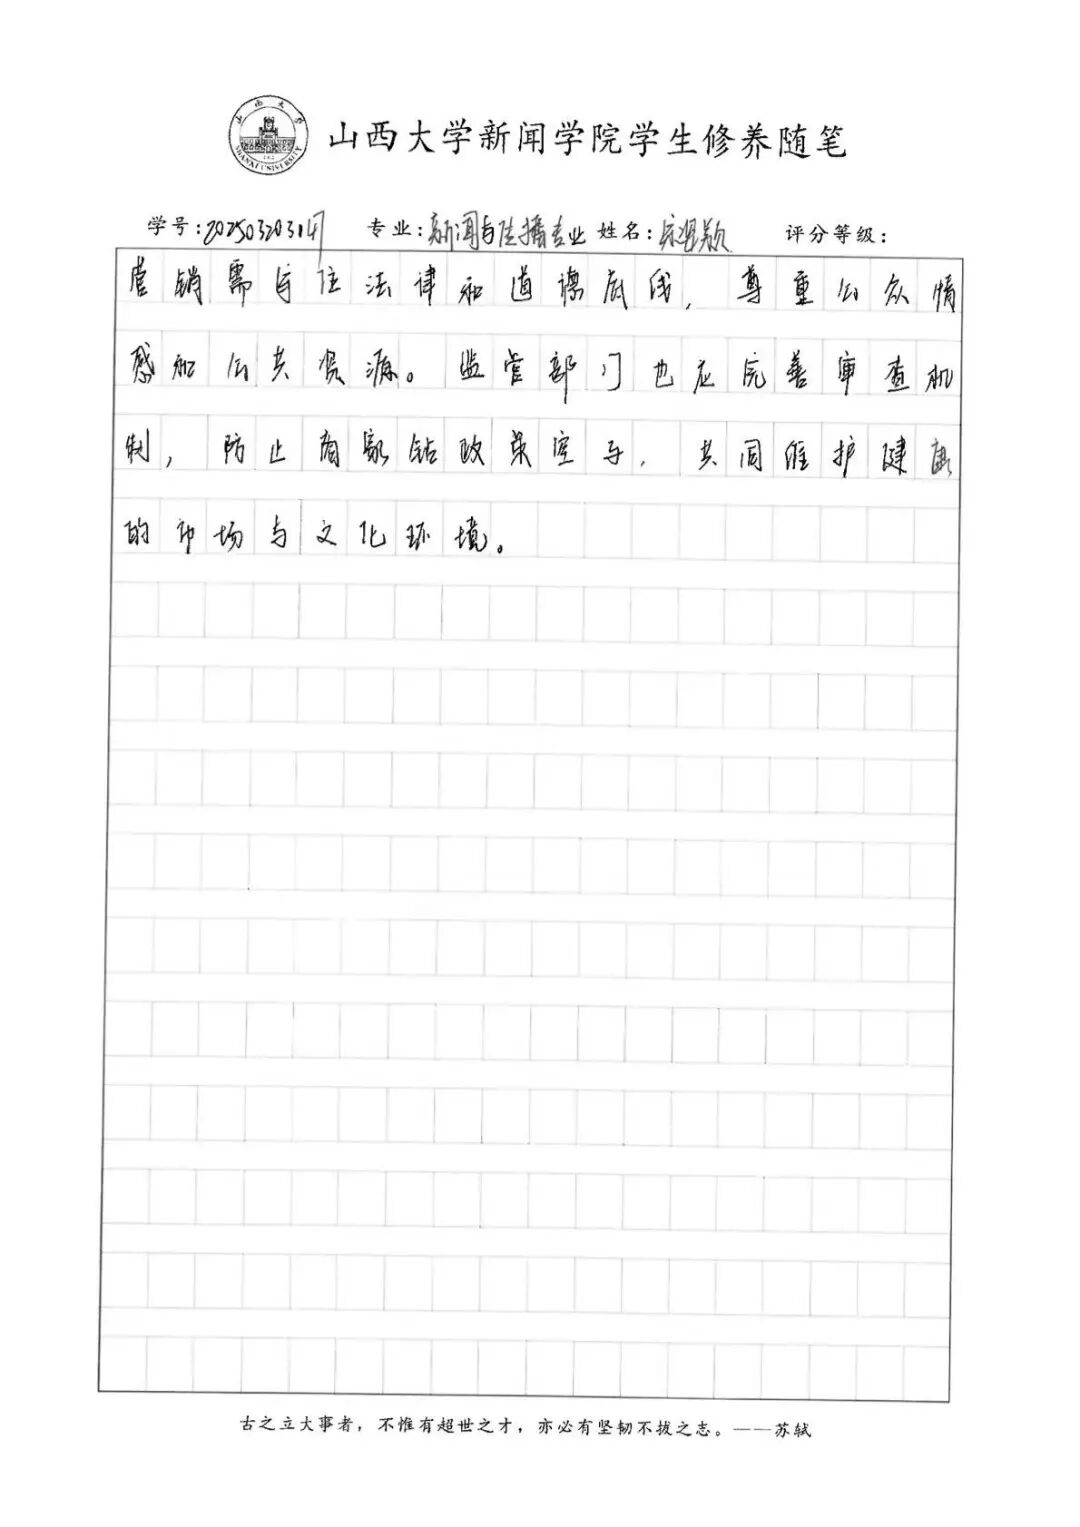 山西大学新闻学院学生修养随笔
学号: 专业:新闻与传播专业 姓名:宋 颖 评分等级:
营销需守住法律和道德底线，尊重公众情
感和公共资源。监管部门也应完善审查机
制，防止商家钻政策空子，共同维护健康
的市场与文化环境。
古之立大事者，不惟有超世之才，亦必有坚韧不拔之志。——苏轼